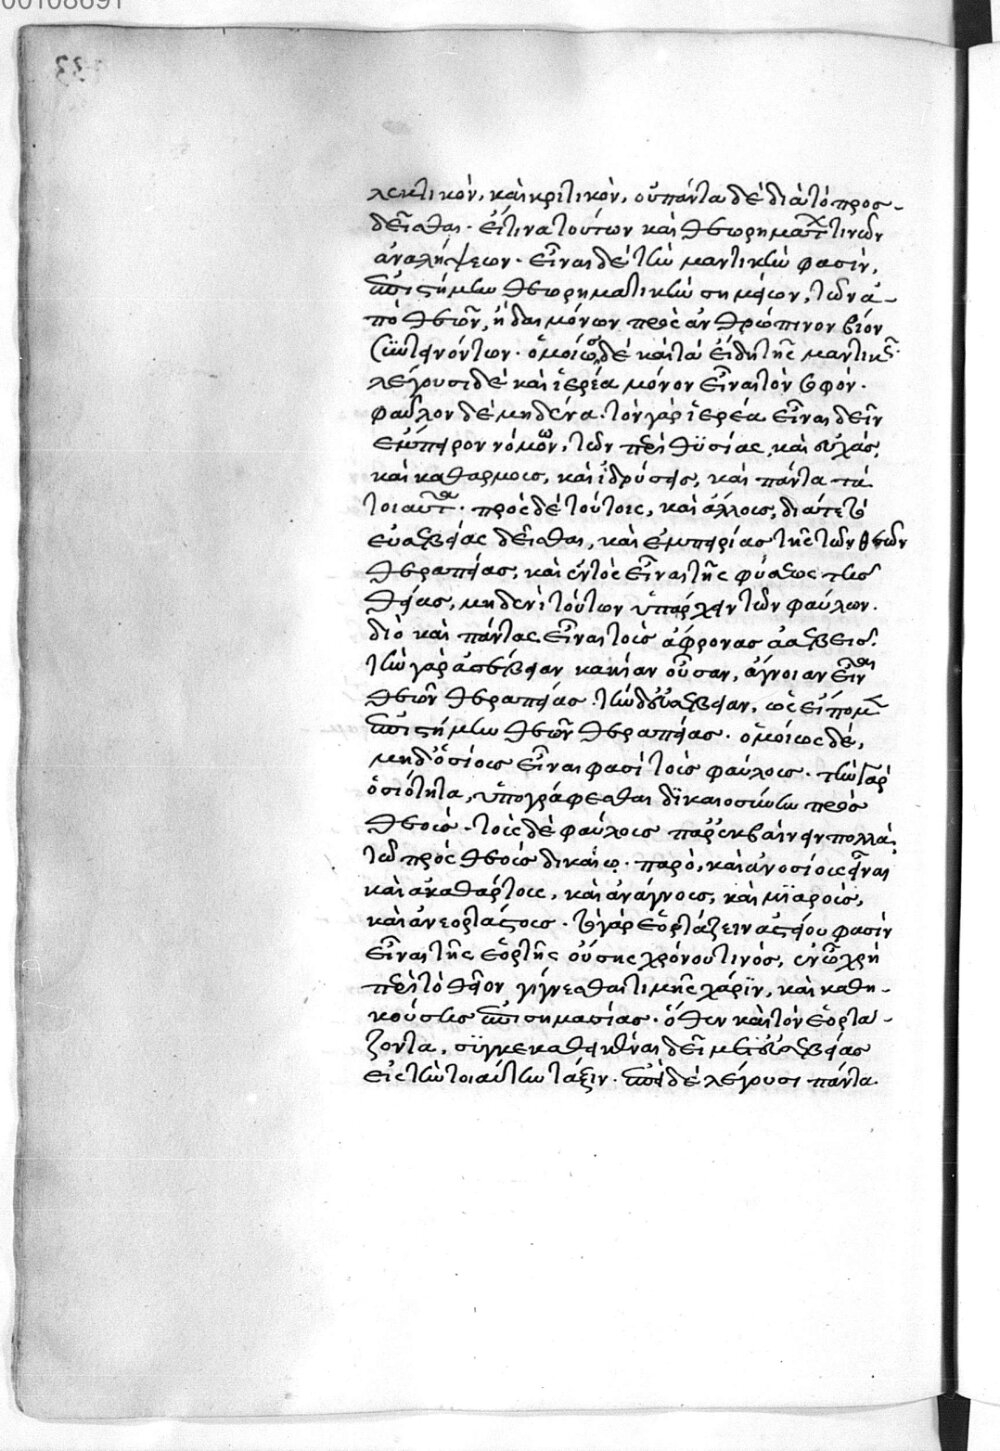 00108691
λεκτικὸν, καὶ κριτικὸν, οὐ πάντα δὲ διὰ τὸ προσ-
δεῖσθαι. ἔτι τινα τούτων καὶ θεωρημάτων τινῶν
ἀναλήψεων. εἶναι δὲ τὴν μαντικὴν φασὶν,
ἐπιστήμην θεωρηματικὴν σημείων, τῶν ἀ-
πὸ θεῶν, ἢ δαιμόνων πρὸς ἀνθρώπινον βίον
συντεινόντων. ὁμοίως δὲ καὶ τὰ εἴδη τῆς μαντικῆς.
λέγουσι δὲ καὶ ἱερέα μόνον εἶναι τὸν σοφὸν.
φαῦλον δὲ μηδένα. τὸν γὰρ ἱερέα εἶναι δεῖν
ἔμπειρον νόμων, τῶν περὶ θυσίας, καὶ εὐχὰς,
καὶ καθαρμοὺς, καὶ ἱδρύσεις, καὶ πάντα τὰ
τοιαῦτα. πρὸς δὲ τούτοις, καὶ ἄλλοις, διά τε τὸ
εὐσεβείας δεῖσθαι, καὶ ἐμπειρίας τῆς τῶν θεῶν
θεραπείας, καὶ ἐντὸς εἶναι τῆς φύσεως τῆς
θείας, μηδενὶ τούτων ὑπάρχειν τῶν φαύλων.
διὸ καὶ πάντας εἶναι τοὺς ἄφρονας ἀσεβεῖς.
τὴν γὰρ ἀσέβειαν κακίαν οὖσαν, ἄγνοιαν εἶναι
θεῶν θεραπείας. τὴν δ' εὐσέβειαν, ὡς εἴπομεν
ἐπιστήμην θεῶν θεραπείας. ὁμοίως δὲ,
μηδ' ὁσίους εἶναι φασὶ τοὺς φαύλους. τὴν γὰρ
ὁσιότητα, ὑπογράφεσθαι δικαιοσύνην πρὸς
θεοὺς. τοὺς δὲ φαύλους παρεκβαίνειν πολλὰ
τῶν πρὸς θεοὺς δικαίων. παρὸ, καὶ ἀνοσίους εἶναι
καὶ ἀκαθάρτους, καὶ ἀνάγνους, καὶ μιαροὺς,
καὶ ἀνεορτάστους. τὸ γὰρ ἑορτάζειν ἀστείου φασὶν
εἶναι τῆς ἑορτῆς οὔσης χρόνου τινὸς, ἐν ᾧ χρὴ
περὶ τὸ θεῖον γίγνεσθαι τιμῆς χάριν, καὶ καθη-
κούσης ἐπισημασίας. ὅθεν καὶ τὸν ἑορτά-
ζοντα, συγκεκαθεικέναι δεῖ μετ' εὐσεβείας
εἰς τὴν τοιαύτην τάξιν. ἔτι δὲ λέγουσι πάντα